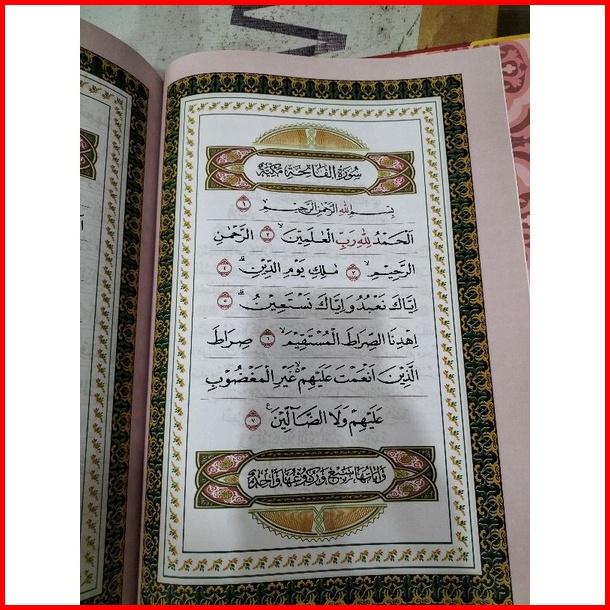 سُورَةُ الْفَاتِحَةِ مَكِّيَّةٌ
بِسْمِ اللهِ الرَّحْمٰنِ الرَّحِيْمِ ١
اَلْحَمْدُ لِلّٰهِ رَبِّ الْعٰلَمِيْنَ ۙ ٢ الرَّحْمٰنِ
الرَّحِيْمِ ۙ ٣ مٰلِكِ يَوْمِ الدِّيْنِ ۗ ٤
اِيَّاكَ نَعْبُدُ وَاِيَّاكَ نَسْتَعِيْنُ ۗ ٥
اِهْدِنَا الصِّرَاطَ الْمُسْتَقِيْمَ ۙ ٦ صِرَاطَ
الَّذِيْنَ اَنْعَمْتَ عَلَيْهِمْ ۙ غَيْرِ الْمَغْضُوْبِ
عَلَيْهِمْ وَلَا الضَّآلِّيْنَ ࣖ ٧
وَاٰيَاتُهَا سَبْعٌ وَرُكُوْعُهَا وَاحِدَةٌ